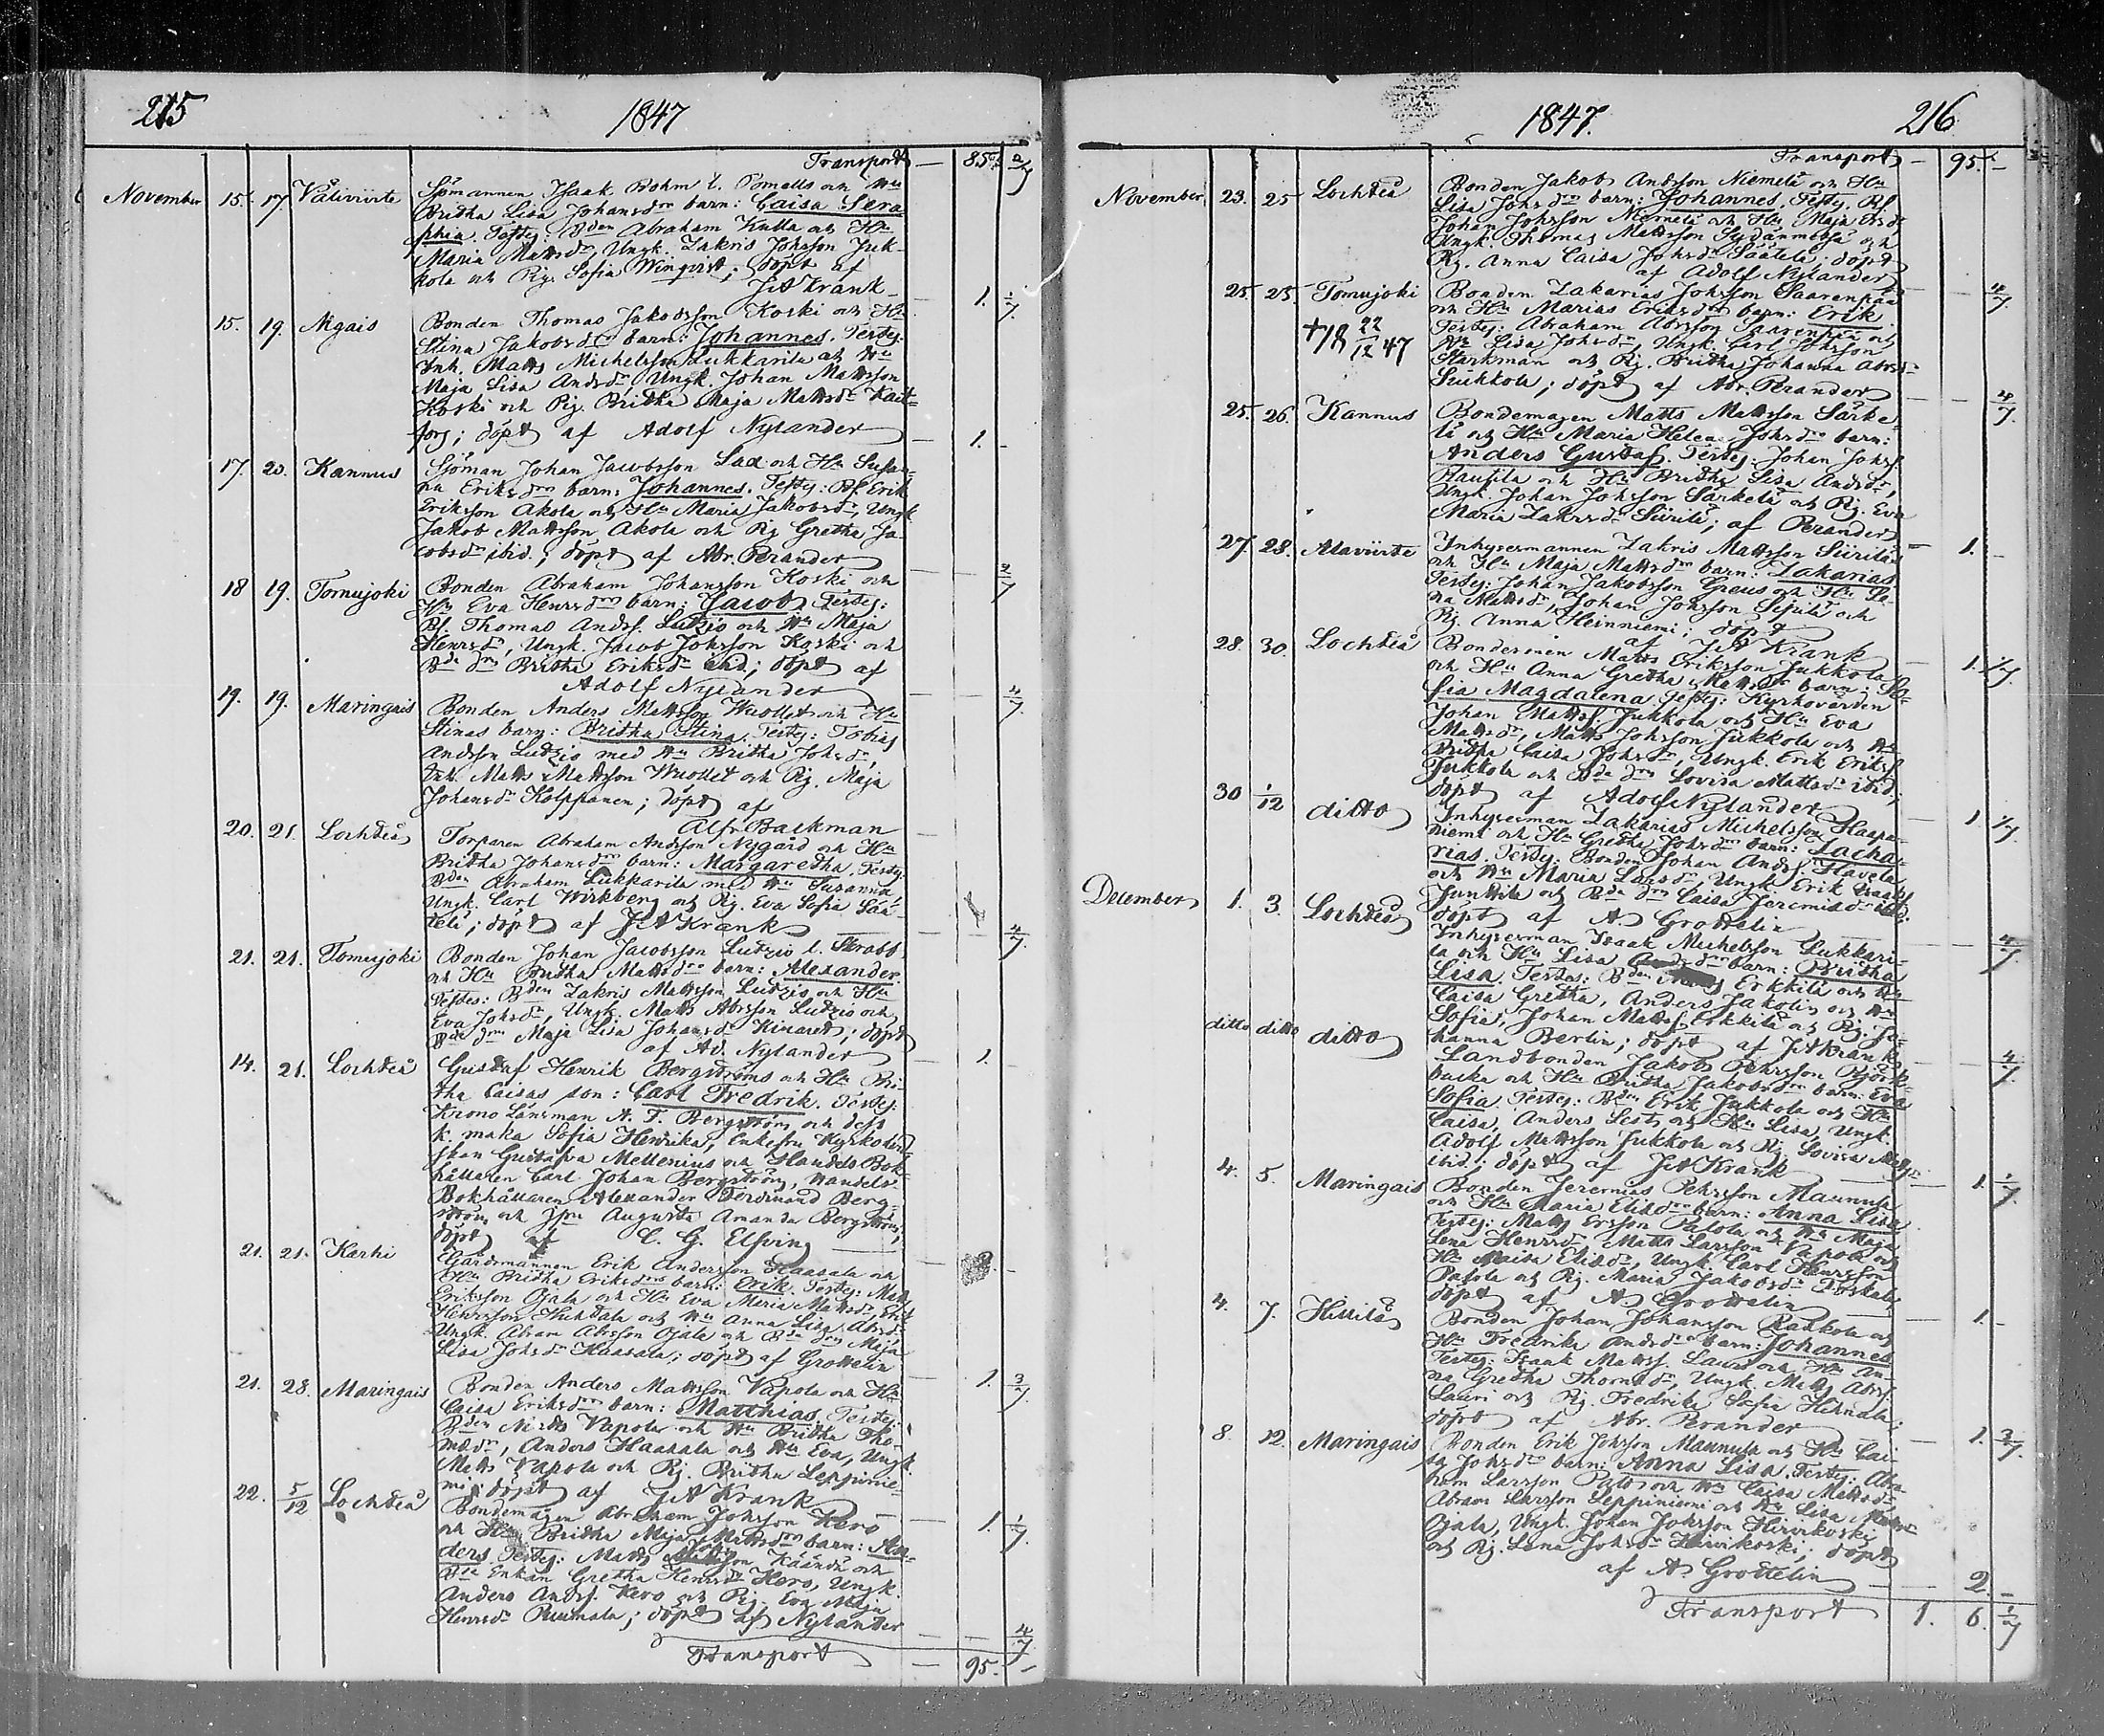 215
1847
Transport — 85.
November 15. 17. Sjömannen Isaak Bohm l. Pomells och Hu
Bridha Lisa Johansdrs barn: Caisa Sera-
phia. Testes: Bden Abraham Kulla och Hu
Maria Mattsdr, Ungk. Zakris Johsson Juk-
kola och Pig. Sofia Winqvist; döpt af
J A Krank — 1.
15. 19. Bonden Thomas Jakobsson Koski och Hu
Stina Jakobsdrs barn: Johannes. Testes:
Inh. Matts Michelsson Lukkarila och Hu
Maja Lisa Andsdr, Ungk. Johan Mattsson
Koski och Pig. Bridha Maja Mattsdr
döpt af Adolf Nylander — 1. -
17. 20. Kannus Sjöman Johan Jacobsson Sax och Hu Susan-
na Eriksdrs barn: Johannes. Testes: Bf. Erik
Eriksson Akola och Hu Maria Jakobsdr, Ungk
Jakob Mattsson Akola och Pig Gretha Ja-
cobsdr ibid.; döpt af Abr. Perander
18 19. Tomujoki Bonden Abraham Johansson Koski och
Hu Eva Henrsdrs barn: Jacob. Testes:
Bf. Thomas Andsf. Ludzio och Hu Maja
Henrsdr, Ungk. Jacob Johsson Koski och
Bde drn Bridha Eriksdr ibid; döpt af
Adolf Nylander — 4/7.
19. 19. Maringais Bonden Anders Mattsson Wuollet och Hu
Stinas barn: Bridha Stina. Testes: Tobias
Andsson Ludzio med Hu Bridha Johsdr,
Inh. Matts Mattsson Wuollet och Pig. Maja
Johansdr Kolppanen; döpt af
Alfr Backman —
20. 21. Lochteå Torparen Abraham Andsson Nygård och Hu
Bridha Johansdrs barn: Margaretha. Testes:
Bden Abraham Lukkarila med Hu Susanna
Ungk. Carl Wirkberg och Pig. Eva Sofia Sää-
telä; döpt af J A Krank — 4/7.
21. 21. Tomujoki Bonden Johan Jacobsson Ludzio l. Skrabb
och Hu Bridha Mattsdrs barn: Alexander.
Testes: Bden Zakris Mattsson Ludzio och Hu
Eva Johsdr, Ungk. Matts Abrsson Ludzio och
Bde drn Maja Lisa Johansdr Kinaret; döpt
af Ad. Nylander — 1. -
14. 21. Lochteå Gustaf Henrik Bergströms och Hu Bri-
tha Caisas son: Carl Fredrik. Testes:
Krono Länsman A. F. Bergström och dess
k. maka Sofia Henrika, Enkefru
Gustafva Mellenius och Handels Bok-
hållaren Carl Johan Bergström, Handels
Bokhållaren Alexander Ferdinand Berg-
ström och Jfru Augusta Amanda Bergström,
döpt af C. G. Elfving
21. 21. Karhi Gårdsmannen Erik Andersson Haasala och
Hu Bridha Eriksdrs barn: Erik. Testes: Matts
Eriksson Ojala och Hu Eva Maria Mattsdr, Erik
Henrsson Huhtala och Hu Anna Lisa Abrsdr
Ungk. Abram Abrsson Ojala och Bde drn Maja
Lisa Johsdr Haasala; döpt af Grottelin
21. 28. Maringais Bonden Anders Mattsson Vapola och Hu — 1. 3/7.
Caisa Eriksdrs barn: Matthias. Testes:
Bden Matts Vapola och Hu Bridha Tho-
masdr, Anders Haasala och Hu Eva, Ungk.
Matts Vapola och Pig. Bridha Leppinie-
mi; döpt af J A Krank
22. 5/12 Lochteå Bondemågen Abraham Johsson Kero — 1.
och Hu Bridha Maja Mattsdrs barn: An-
ders. Testes: Matts Kääntä och
Bde Enkan Gretha Henrsdr Hero, Ungk.
Anders Andsf. Kero och Pig. Eva Maja
Henrsdr Ruumala; döpt af Nylander — 4/7
Transport — 95. -
1847.
216
Transport — 95. -
November 23. 25 Lochteå Bonden Jakob Andsson Niemelä och Hu
Lisa Johsdrs barn: Johannes. Testes. Bf.
Johan Johsson Niemelä och Hu Maja Ersdr
Ungk. Thomas Mattsson Sydänmetsä och
Pig. Anna Caisa Johsdr Säätelä; döpt
af Adolf Nylander — 4/7.
25. 25. Tomujoki Bonden Zakarias Johsson Saarenpää
och Hu Marias Eriksdrs barn: Erik.
Testes: Abraham Abrsson Saarenpää och
Hu Lisa Johsdr, Ungk. Carl
Starkman och Pig. Bridha Johanna Abrsdr
Sukkola; döpt af Abr. Perander — 4/7.
+ 18 22/12 47
25. 26. Kannus Bondemagen Matts Mattsson Särke-
lä och Hu Maria Helena Johsdrs barn:
Anders Gustaf. Testes: Johan Johsf.
Rautila och Hu Bridha Lisa Andsdr,
Ungk. Johan Johsson Särkelä och Pig. Eva
Maria Zakrsdr Siirilä; af Perander — 1. -
27. 28. Alaviirte Inhysesmannen Zakris Mattsson Siirilä
och Hu Maja Mattsdrs barn: Zakarias
Testes: Johan Jakobsson Greus och Hu Le-
na Mattsdr, Johan Johsson Sipilä och
Pig. Anna Heinniemi; döpt
af J A Krank
28. 30. Lochteå Bondesonen Matts Eriksson Jukkola
och Hu Anna Gretha Mattsdr barn: So-
fia Magdalena. Testes: Kyrkovärden
Johan Mattsf. Jukkola och Hu Eva
Mattsdr, Matts Johsson Jukkola och Hu
Bridha Caisa Johsdr, Ungk. Erik Eriksf.
Jukkola och Bde drn Lovisa Mattsdr ibid;
döpt af Adolf Nylander
30 1/12 ditto Inhysesman Zakarias Michelsson Haapa-
niemi och Hu Gretha Johsdrs barn: Zacha-
rias. Testes: Bonden Johan Andsf. Havela
och Hu Maria Larsdr, Ungk. Erik
Junttila och Bde drn Caisa Jeremiasdr ibid:
döpt af A. Grottelin — 4/7
December 1. 3. Lochteå Inhysesman Isaak Michelsson Lukkari-
la och Hu Lisa barn: Bridha
Lisa. Testes: Bden Erkkilä och Hu
Caisa Gretha, Anders Jakolin och Hu
Sofia, Johan Mattsf. Erkkilä och Pig. Jo-
hanna Berlin; döpt af J A Krank — 4/7.
ditto ditto ditto Landbonden Jakob Pehrsson Björk-
backa och Hu Bridha Jakobsdrs barn: Eva
Sofia. Testes: Bden Erik Jukkola och Hu
Caisa, Anders Lests och Hu Lisa, Ungk.
Adolf Mattsson Jukkola och Pig. Lovisa Mattsdr
ibid.; döpt af J A Krank — 1.
4. 5. Maringais Bonden Jeremias Pehrsson Maunula
och Hu Maria Eliasdrs barn: Anna Lisa.
Testes: Matts Ersson Palola och Hu Maja
Lena Henrsdr, Matts Larsson Vapola och
Hu Maisa Eliasdr, Ungk. Carl Henrsson
Palola och Pig. Maria Jakobsdr
döpt af A. Grottelin — 1. -
4. 7. Hillilä Bonden Johan Johansson Raukola och
Hu Fredrika Andsdrs barn: Johannes
Testes: Isaak Mattsf. Lauri och Hu An-
na Gretha Thomsdr, Ungk. Matts Abrsf.
Lauri och Pig. Fredrika Sofia Hihnala;
döpt af Abr. Perander — 1. 3/7.
8. 12. Maringais Bonden Erik Johsson Maunula och Hu Cai-
sa Johsdrs barn: Anna Lisa. Testes: Abra-
ham Larsson Palo och Hu Caisa Mattsdr
Abram Larsson Leppiniemi och Hu Lisa
Ojala, Ungk. Johan Johsson Hirvikoski
och Pig. Lena Johsdr Hirvikoski; döpt
af A. Grottelin — 2. -
Transport 1. 6.